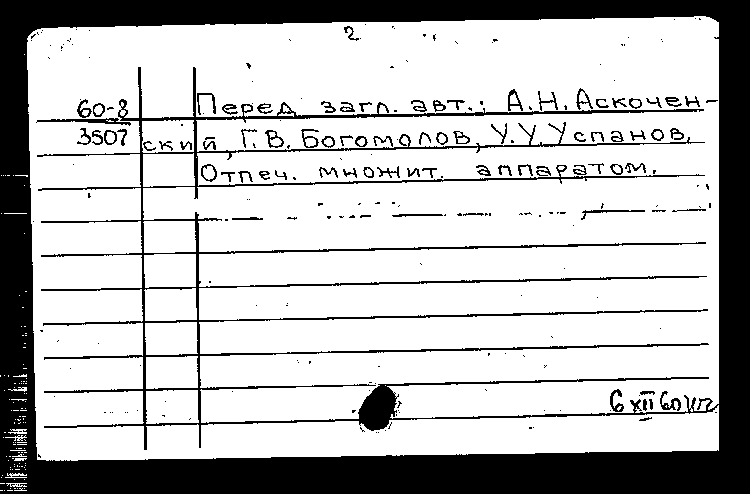 2
60-8 Перед загл. авт.: А.Н.Аскочен-
3507 ский, Г.В. Богомолов, У.У.Успанов.
Отпеч. множит. аппаратом.
6 XII 60